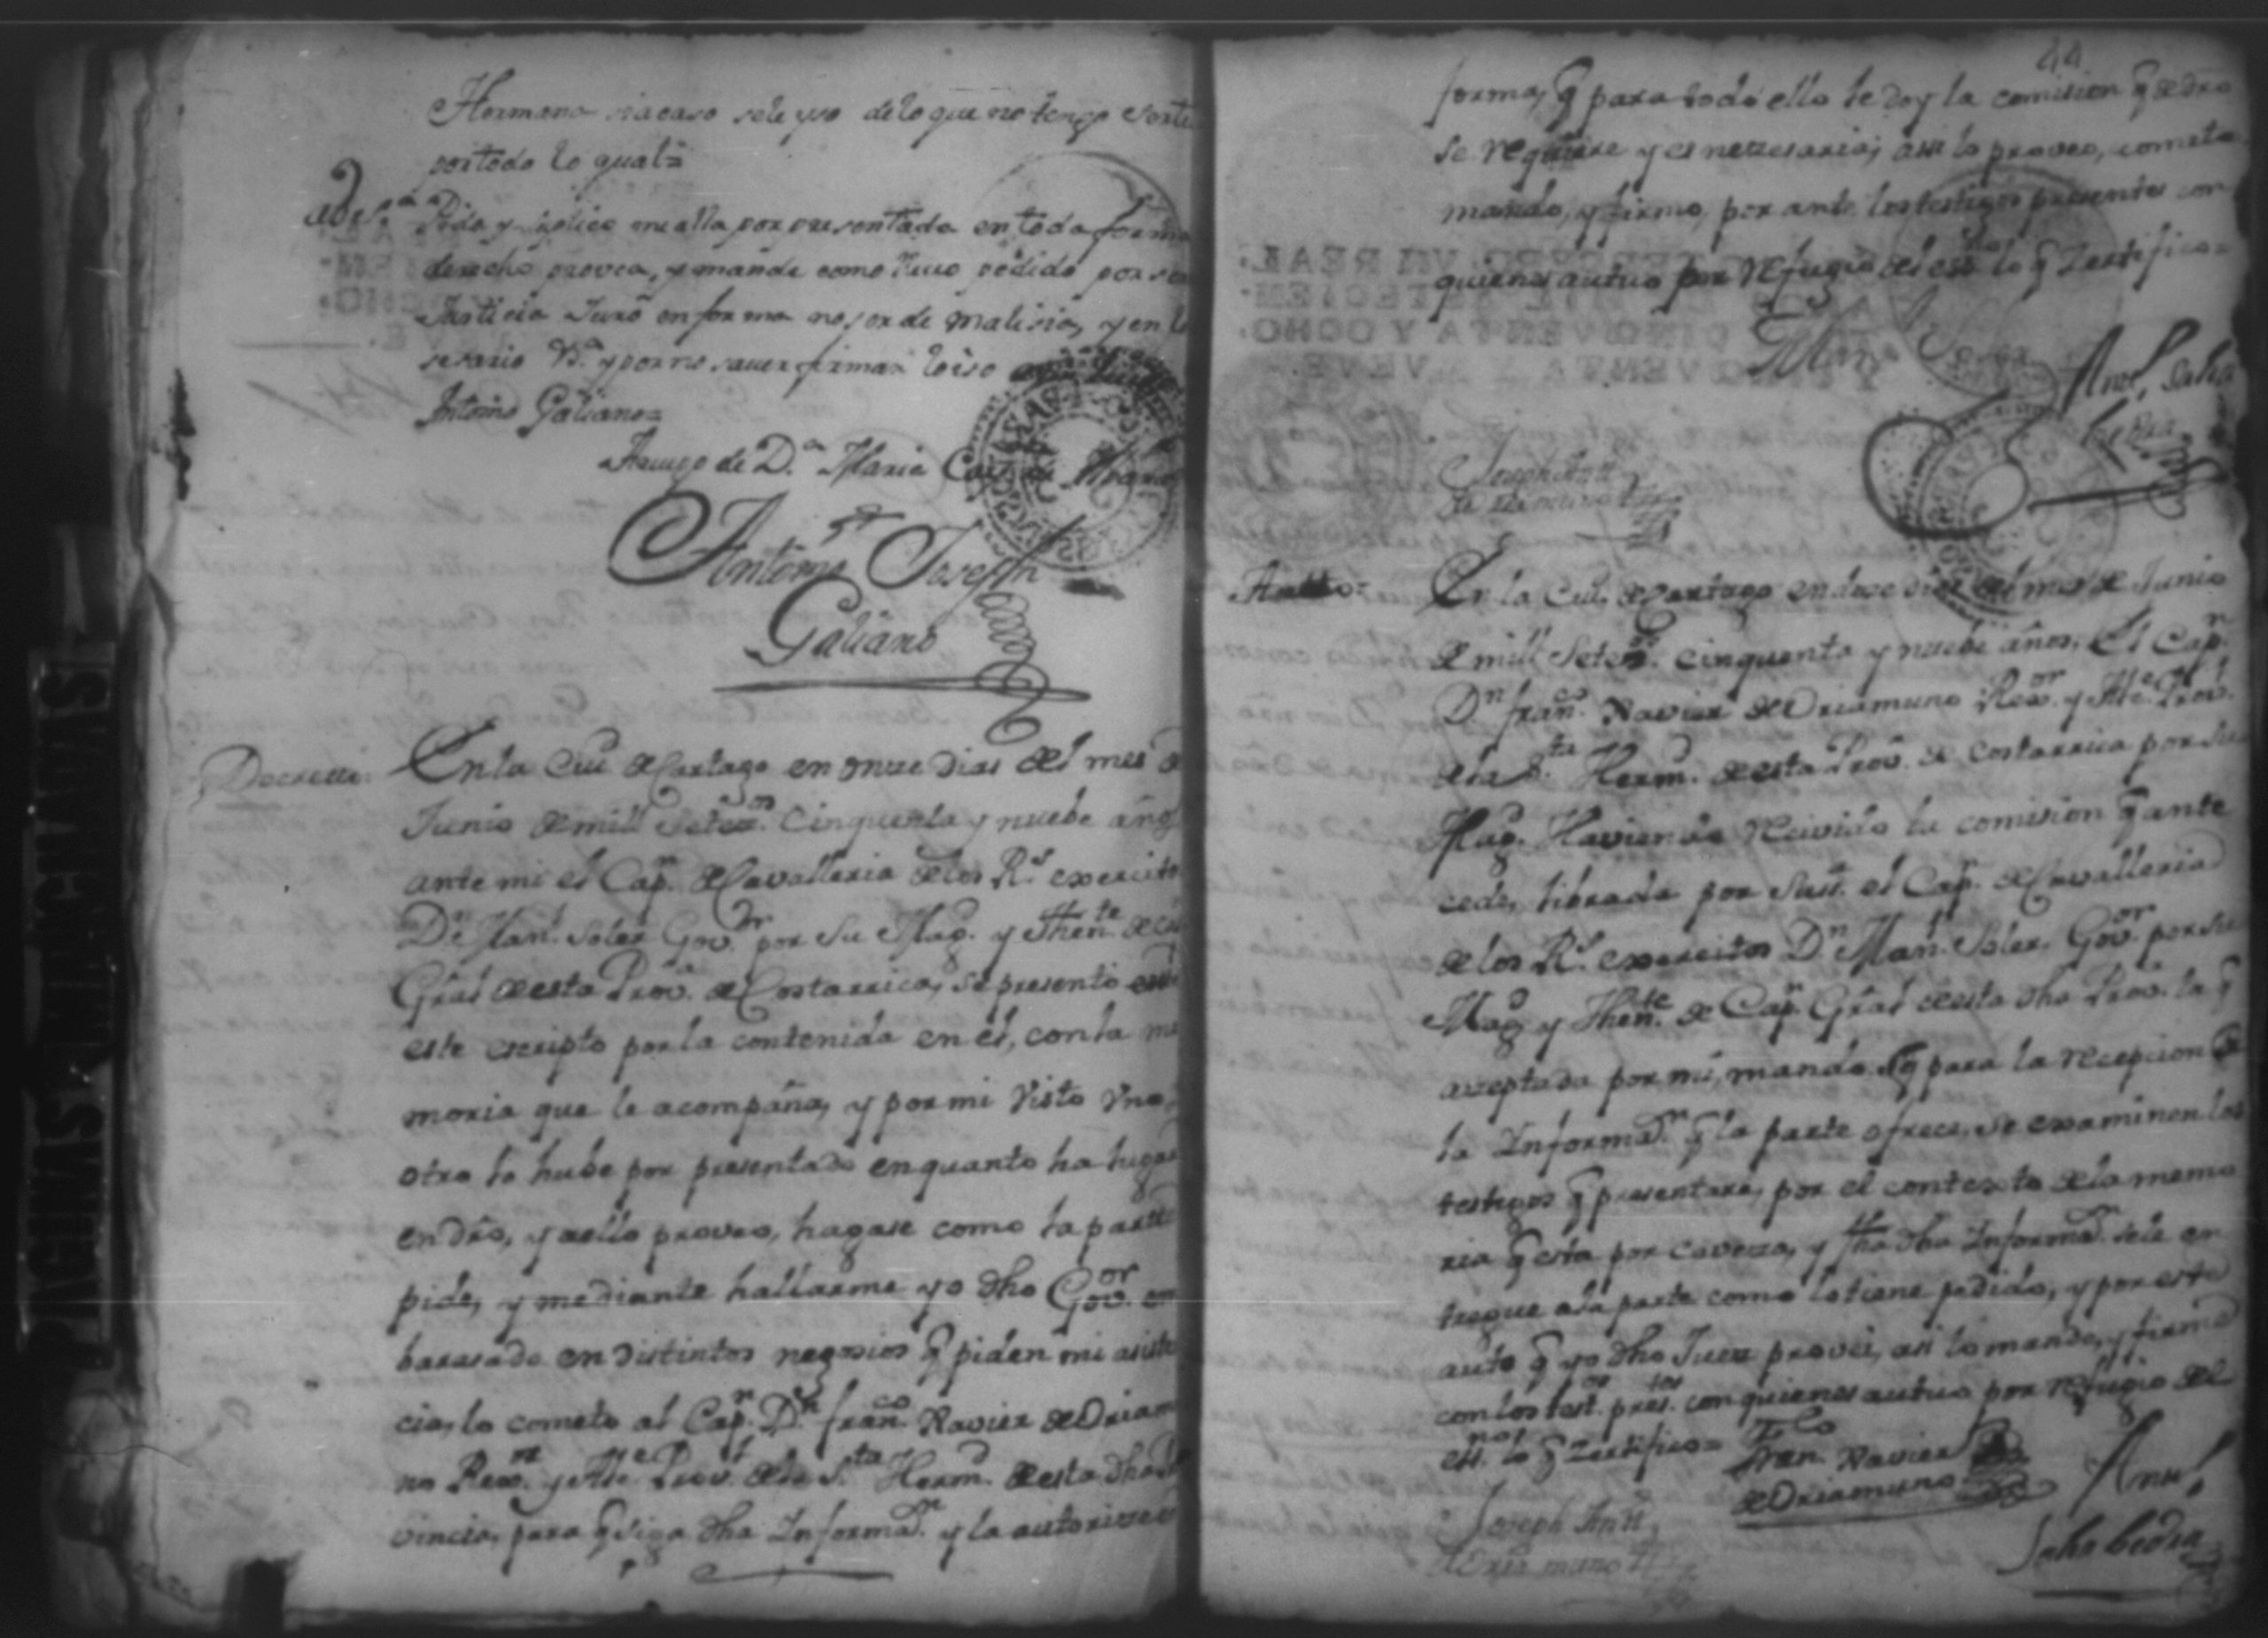 Hermano siacaso sele yso deloque no tengo
por todo lo qual=
Pido y suplico me alla por presentada en toda forma
derecho provea, y mande como llevo pedido por ser
Justicia Juro en forma no ser de malicia, y en lo
sesario V.ª y por no saver firmar lo iso
Antonio Galiano=
Aruego de D.ª Maria
Antonio Joseph
Galiano
Decretto
En la Ciu.d de Cartago en onze dias del mes d
Junio de mill setez.os cinquenta y nuebe años
ante mi el Cap.n de Cavalleria de los R.s exercito
D.n Man.l Soler Gov.or por Su Mag.d y Then.te de Ca
Grãl de esta Prov.a de Costarrica, se presentó
este escripto por la contenida en él, con la me
moria que le acompaña, y por mi visto vno,
otro lo hube por presentado en quanto ha lugar
en dr̃o, y a ello proveo, hagase como la parte
pide, y mediante hallarme yo dho Gov.or em
barasado en distintos negosios q̃ piden mi asiste
cia, lo cometo al Cap.n D.n fran.co Xavier de Oriam
no Rex.or y Alc.e Prov.l de la S.ta Herm.d de esta dha Pr
vincia, para q̃ siga dha Informa.n y la autorize en
44
forma, q̃ para todo ello le doy la comision q̃ de dr̃o
se requiere y es nezesaria; assi lo proveo, cometo
mando, y firmo, por ante los testigos presentes con
quienes autuo por refugio del ess.no lo q̃ Zertifico=
Man.l Soler
Joseph Ant.o
de Oriamuno
Autto=
En la Ciu.d de Cartago en doze dias del mes de Junio
de mill setez.os cinquenta y nuebe años. El Cap.n
D.n fran.co Xavier de Oriamuno Rex.or y Alc.e Prov.l
de la S.ta Herm.d de esta Prov.a de Costarrica por Su
Mag.d Haviendo recivido la comision q̃ ante
cede, librada por Su el Cap.n de Cavalleria
de los R.s exercitos D.n Man.l Soler, Gov.or por Su
Mag.d y Then.te de Cap.n Grãl de esta dha Prov.a la q̃
azeptada por mi, mando q̃ para la recepcion de
la Informa.n q̃ la parte ofrece, se examinen los
testigos q̃ presentare, por el contexto de la memo
ria q̃ esta por caveza, y fha dha Informa.n se le en
tregue a la parte como lo tiene pedido, y por este
auto q̃ yo dho Juez provei, asi lo mando, y firmo
con los test.os pres.tes con quienes autuo por refugio del
ess.no lo q̃ Zertifico=
Fran.co Xavier
de Oriamuno
Joseph Ant.o
de Oriamuno